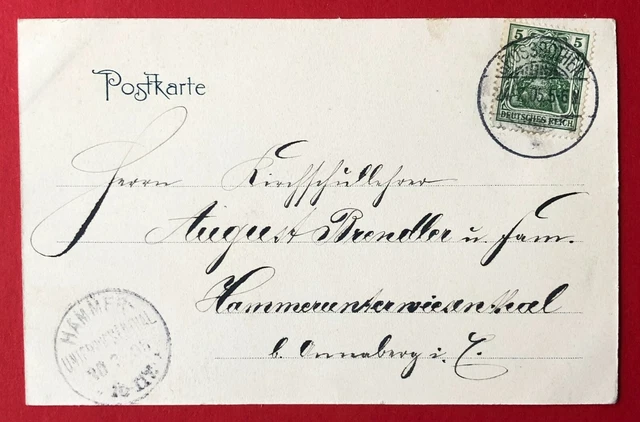 Postkarte
5 5
DEUTSCHES REICH
Herrn Kirchschullehrer
August Brendler u. Fam.
Hammerunterwiesenthal
b. Annaberg i. E.
HAMMER-
UNTERWIESENTHAL